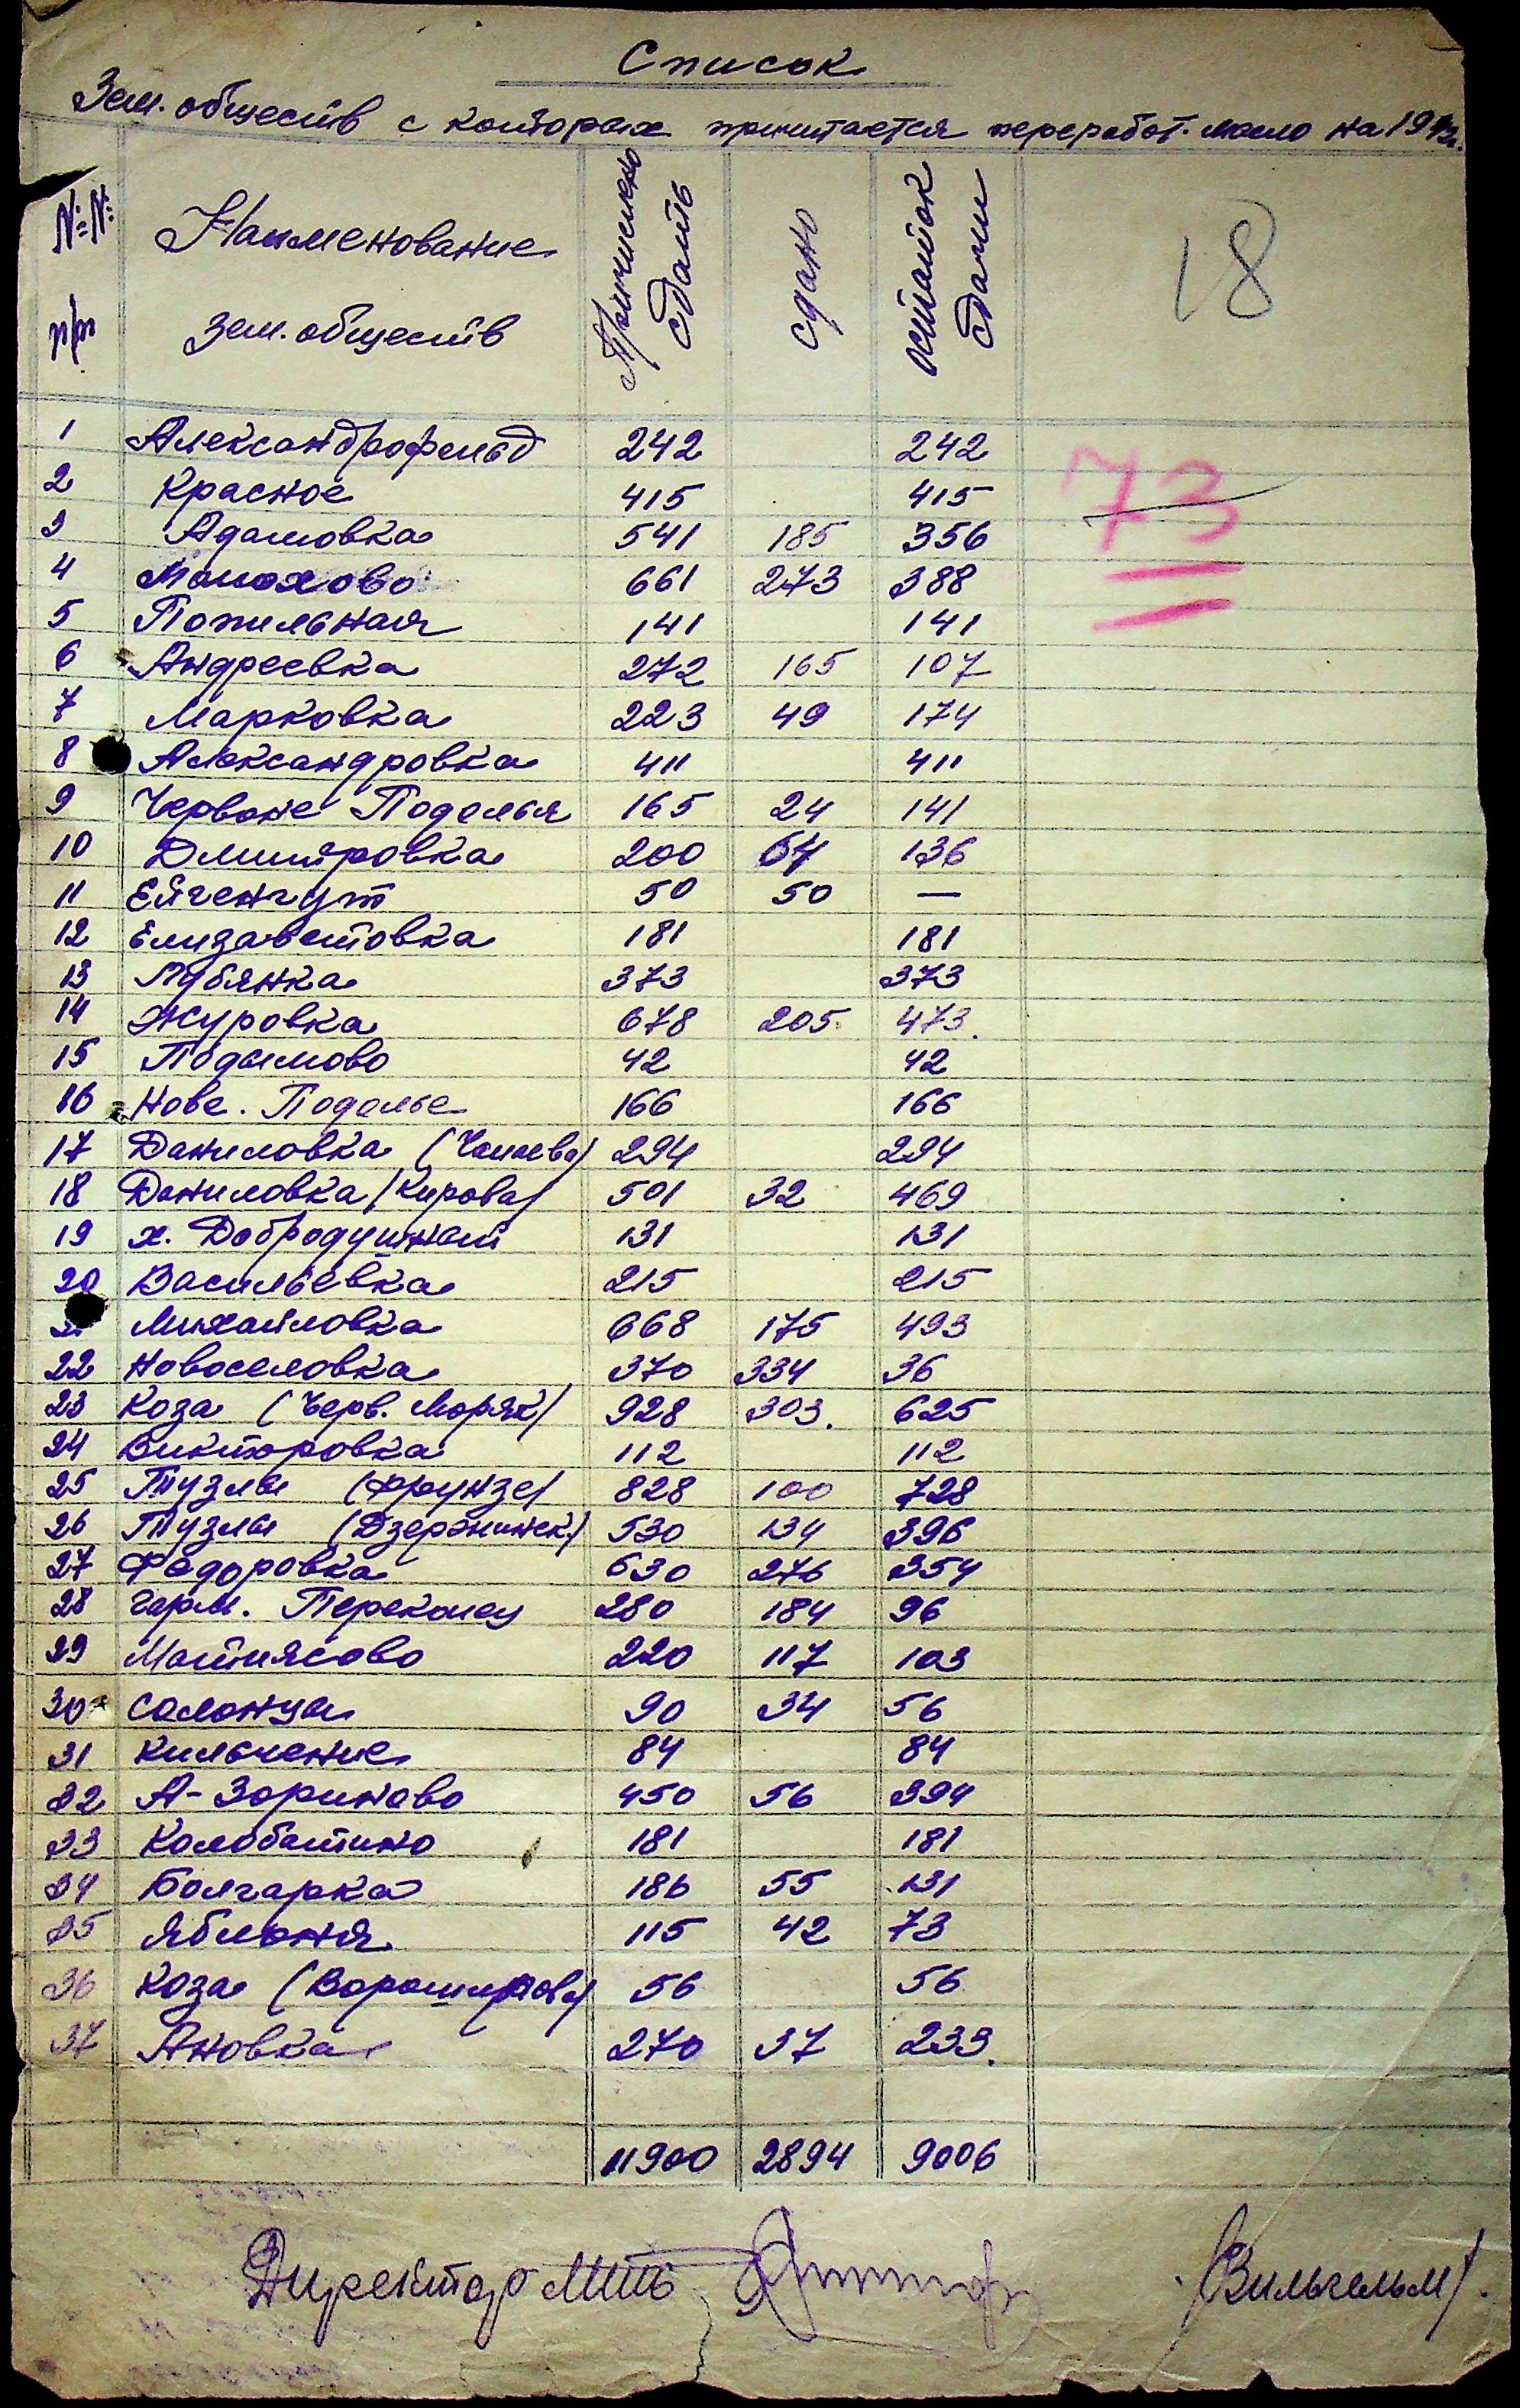 Список
Зем. обществ с которых причитается переработ. масло на 194 г.
№№ п/п
Наименование зем. обществ
Причислено сдать
сдано
остаток сдачи
18
73
1 Александрофельд 242 242
2 Красное 415 415
3 Адамовка 541 185 356
4 Малахово 661 273 388
5 Попильная 141 141
6 Андреевка 272 165 107
7 Марковка 223 49 174
8 Александровка 411 411
9 Червоне Подолья 165 24 141
10 Дмитровка 200 64 136
11 Ейгенгут 50 50 —
12 Елизаветовка 181 181
13 Лубянка 373 373
14 Журовка 678 205 473
15 Подымово 42 42
16 Нове. Подолье 166 166
17 Даниловка (Чапаева) 294 294
18 Даниловка (Кирова) 501 32 469
19 х. Добродушнаш 131 131
20 Васильевка 215 215
Михайловка 668 175 493
22 Новоселовка 370 334 36
23 Коза (Черв. Моряк) 928 303 625
24 Викторовка 112 112
25 Тузлы (Фрунзе) 828 100 728
26 Тузлы (Дзержинск.) 530 134 396
27 Федоровка 630 276 354
28 Герм. Перекопец 280 184 96
29 Матиясово 220 117 103
30 Солонцы 90 34 56
31 Кильчение 84 84
32 А-Зориново 450 56 394
33 Колобатино 181 181
34 Болгарка 186 55 131
35 Яблоня 115 42 73
36 Коза (Ворошилова) 56 56
37 Ановка 270 37 233
11900 2894 9006
Директор МТС (Вильгельм).